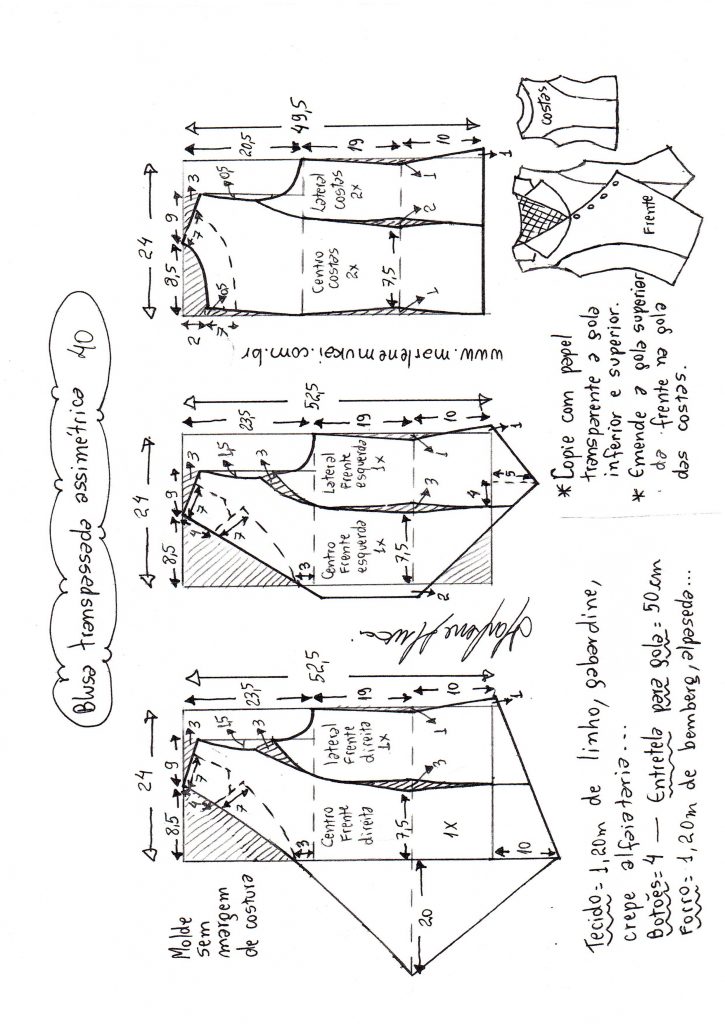 Blusa transpassada assimétrica 40
Molde
sem
margem
de costura
24
8,5
9
3
4
7
7
1,5
3
3
23,5
52,5
19
10
Centro
Frente
direita
lateral
Frente
direita
1x
7,5
3
1
1X
20
10
1
24
8,5
9
3
4
7
7
1,5
3
3
23,5
52,5
19
10
Centro
Frente
esquerda
1x
Lateral
Frente
esquerda
1x
7,5
3
1
2
4
15
1
www.marlenemukai.com.br
24
8,5
9
3
7
2
7
0,5
0,5
20,5
49,5
19
10
Centro
costas
2x
Lateral
costas
2x
7,5
2
1
1
1
Tecido = 1,20m de linho, gabardine,
crepe alfaiataria...
Botões = 4 — Entretela para gola = 50cm
Forro = 1,20m de bemberg, alpaseda...
* Copie com papel
transparente a gola
inferior e superior.
* Emende a gola superior
da frente na gola
das costas.
Frente
costas